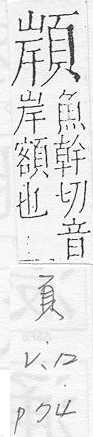 魚幹切音
岸額也
頁
V.12
p74